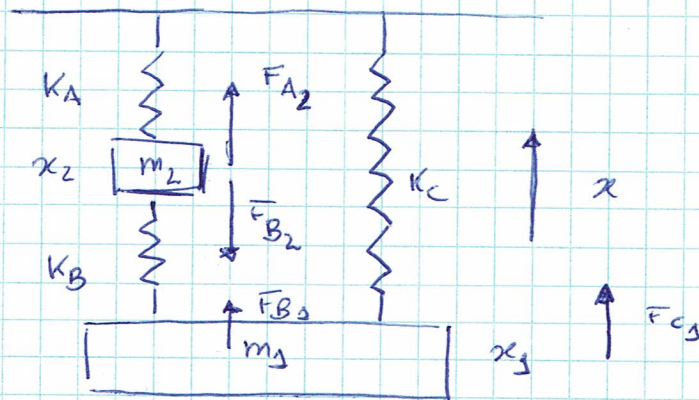 K_A
F_A2
x_2
m_2
F_B2
K_C
x
K_B
F_B1
m_1
x_1
F_C1